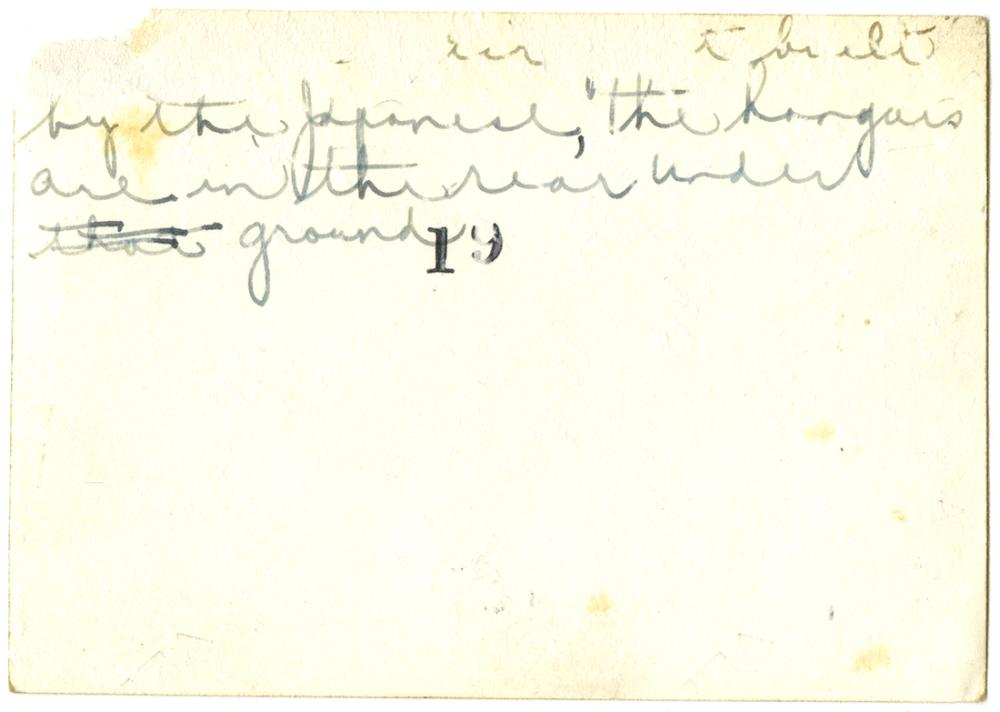 built
by the Japanese, "the hangars
are in the rear under
that ground 19